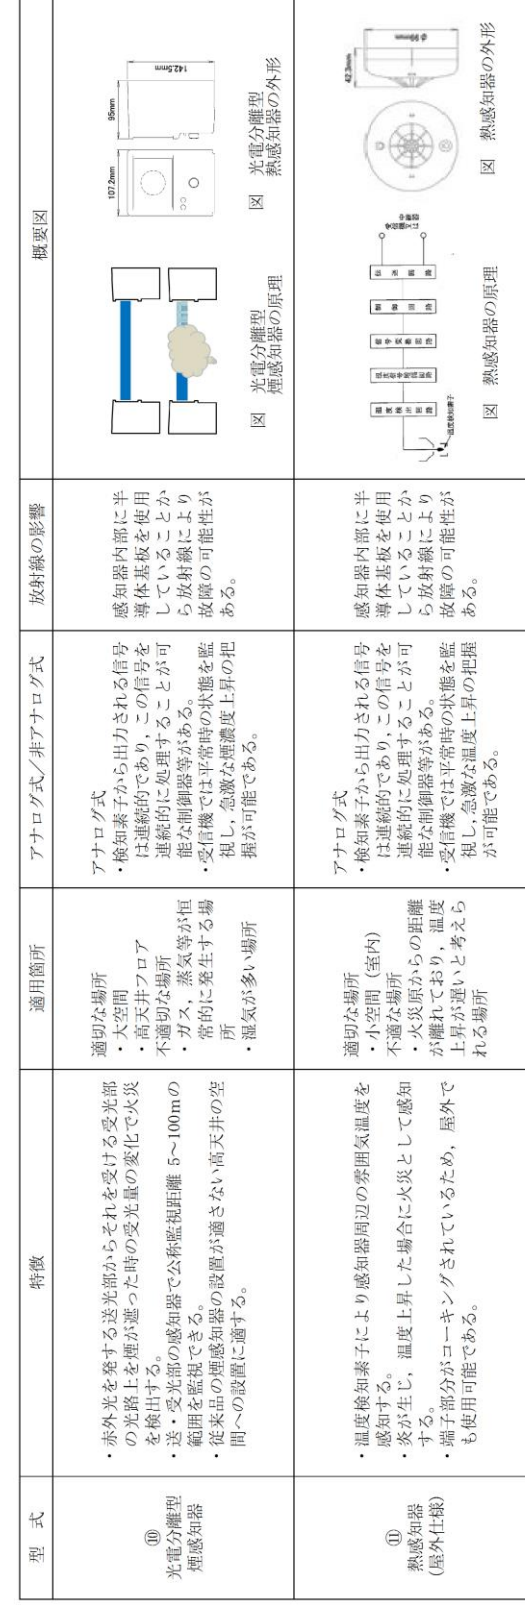 型　式
特徴
適用箇所
アナログ式／非アナログ式
放射線の影響
概要図
⑩
光電分離型
煙感知器
・赤外光を発する送光部からそれを受ける受光部
の光路上を煙が遮った時の受光量の変化で火災
を検出する。
・送・受光部の感知器で公称監視距離 5～100mの
範囲を監視できる。
・従来品の煙感知器の設置が適さない高天井の空
間への設置に適する。
適切な場所
・大空間
・高天井フロア
不適切な場所
・ガス，蒸気等が恒
常的に発生する場
所
・湿気が多い場所
アナログ式
・検知素子から出力される信号
は連続的であり，この信号を
連続的に処理することが可
能な制御器等がある。
・受信機では平常時の状態を監
視し，急激な煙濃度上昇の把
握が可能である。
感知器内部に半
導体基板を使用
していることか
ら放射線により
故障の可能性が
ある。
図　光電分離型
煙感知器の原理
107.2mm
95mm
142.5mm
図　光電分離型
熱感知器の外形
⑪
熱感知器
(屋外仕様)
・温度検知素子により感知器周辺の雰囲気温度を
感知する。
・炎が生じ，温度上昇した場合に火災として感知
する。
・端子部分がコーキングされているため，屋外で
も使用可能である。
適切な場所
・小空間（室内）
不適な場所
・火災原からの距離
が離れており，温度
上昇が遅いと考えら
れる場所
アナログ式
・検知素子から出力される信号
は連続的であり，この信号を
連続的に処理することが可
能な制御器等がある。
・受信機では平常時の状態を監
視し，急激な温度上昇の把握
が可能である。
感知器内部に半
導体基板を使用
していることか
ら放射線により
故障の可能性が
ある。
温度検知素子
温度検出回路
信号変換回路
制御回路
伝送回路
図　熱感知器の原理
42.3mm
φ99mm
図　熱感知器の外形